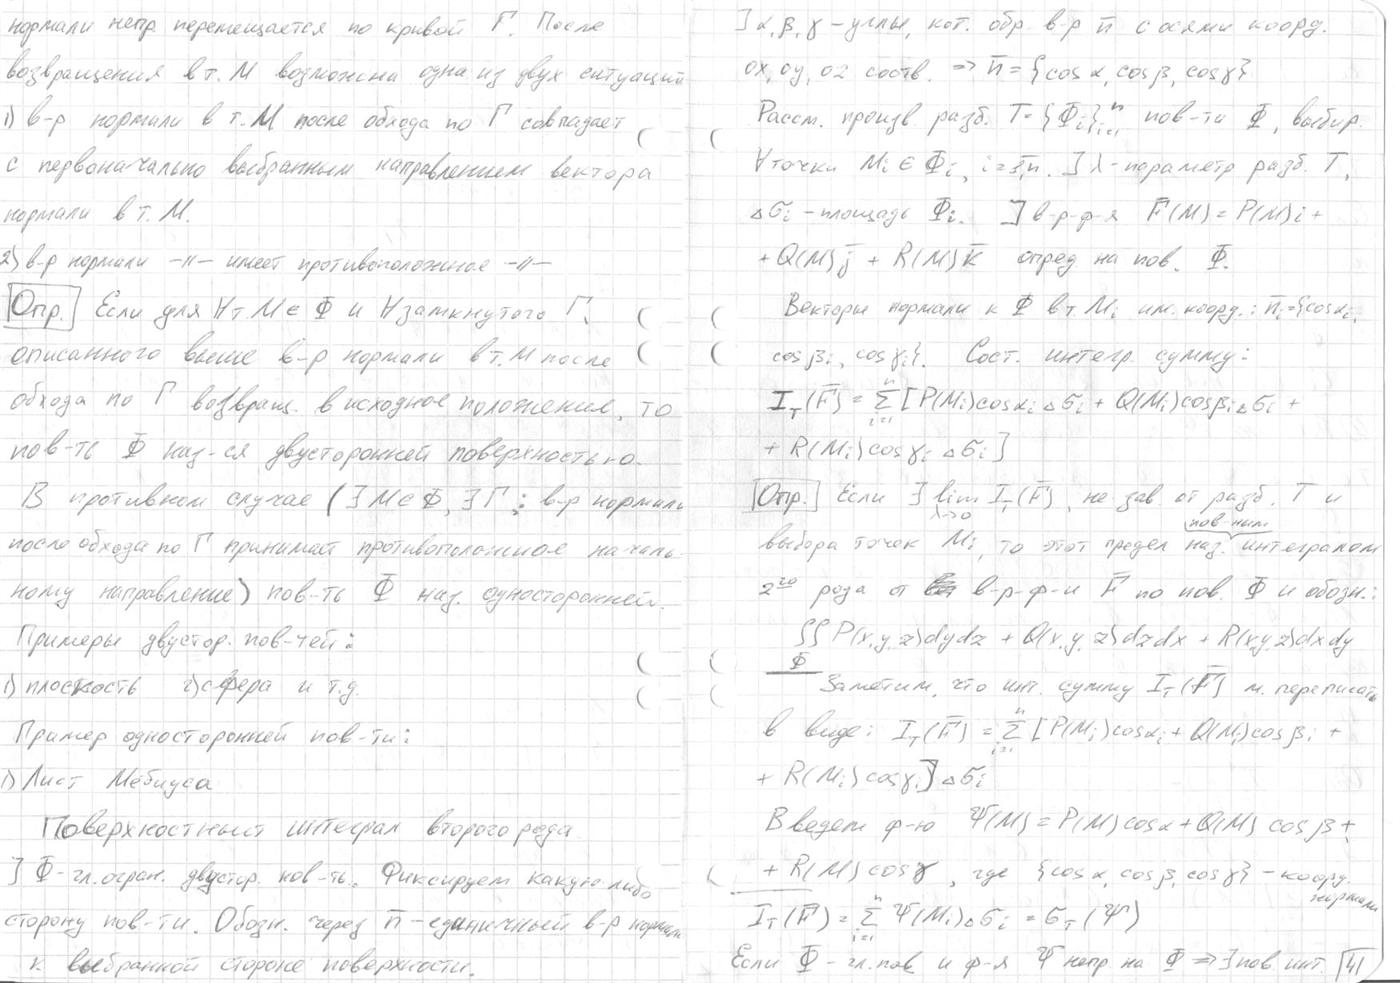 нормали непр. перемещается по кривой Г. После
возвращения в т. М возможна одна из двух ситуаций
1) в-р нормали в т. М после обхода по Г совпадает
с первоначально выбранным направлением вектора
нормали в т. М.
2) в-р нормали -//- имеет противоположное -//-
Опр. Если для ∀ т. М ∈ Ф и ∀ замкнутого Г,
описанного выше в-р нормали в т. М после
обхода по Г возвращ. в исходное положение, то
пов-ть Ф наз-ся двусторонней поверхностью.
В противном случае (∃ М ∈ Ф, ∃ Г; в-р нормали
после обхода по Г принимает противоположное началь-
ному направление) пов-ть Ф наз. односторонней.
Примеры двустор. пов-тей:
1) плоскость 2) сфера и т.д.
Пример односторонней пов-ти:
1) Лист Мёбиуса
Поверхностный интеграл второго рода
] Ф - гл. огран. двустор. пов-ть. Фиксируем какую-либо
сторону пов-ти. Обозн. через n̄ - единичный в-р нормали
к выбранной стороне поверхности.
] α, β, γ - углы, кот. обр. в-р n̄ с осями коорд.
ox, oy, oz соотв. ⇒ n̄ = {cos α, cos β, cos γ}
Рассм. произв. разб. T = {Ф_i}_{i=1}^n пов-ти Ф, выбир.
∀ точки M_i ∈ Ф_i, i=1,n. ] λ - параметр разб. T,
Δσ_i - площадь Ф_i. ] в-р-ф-я F̄(M) = P(M)i +
+ Q(M)j̄ + R(M)k̄ опред. на пов. Ф.
Векторы нормали к Ф в т. M_i им. коорд.: n̄_i = {cos α_i,
cos β_i, cos γ_i}. Сост. интегр. сумму:
I_T(F̄) = Σ_{i=1}^n [P(M_i)cos α_i Δσ_i + Q(M_i)cos β_i Δσ_i +
+ R(M_i)cos γ_i Δσ_i]
Опр. Если ∃ lim_{λ→0} I_T(F̄), не зав. от разб. T и
выбора точек M_i, то этот предел наз. пов-ным интегралом
2го рода от в-р-ф-и F̄ по пов. Ф и обозн.:
∬_Ф P(x,y,z)dydz + Q(x,y,z)dzdx + R(x,y,z)dxdy
Заметим, что инт. сумму I_T(F̄) м. переписать
в виде: I_T(F̄) = Σ_{i=1}^n [P(M_i)cos α_i + Q(M_i)cos β_i +
+ R(M_i)cos γ_i] Δσ_i
Введем ф-ю Ψ(M) = P(M)cos α + Q(M) cos β +
+ R(M) cos γ, где {cos α, cos β, cos γ} - коорд. нормали
I_T(F̄) = Σ_{i=1}^n Ψ(M_i)Δσ_i = σ_T(Ψ)
Если Ф - гл. пов. и ф-я Ψ непр. на Ф ⇒ ∃ пов. инт. 41